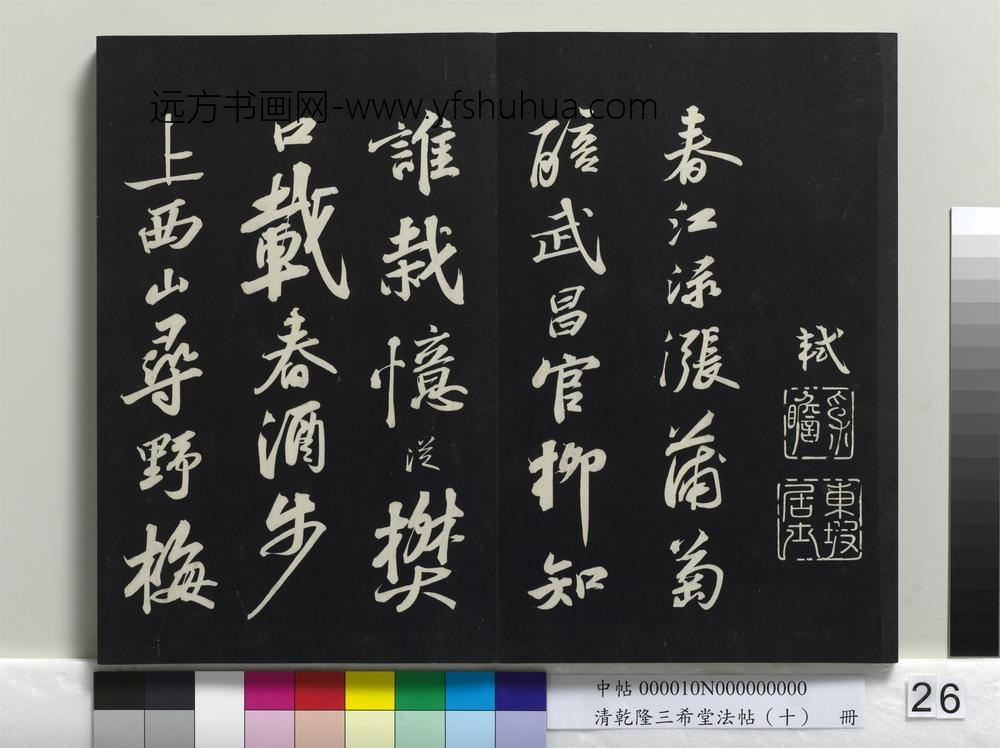 远方书画网-www.yfshuhua.com
軾
子瞻
東坡居士
春江渌漲蒲萄
醅武昌官柳知
誰栽憶從樊
口載春酒步
上西山尋野梅
中帖 000010N000000000
清乾隆三希堂法帖（十） 冊
26